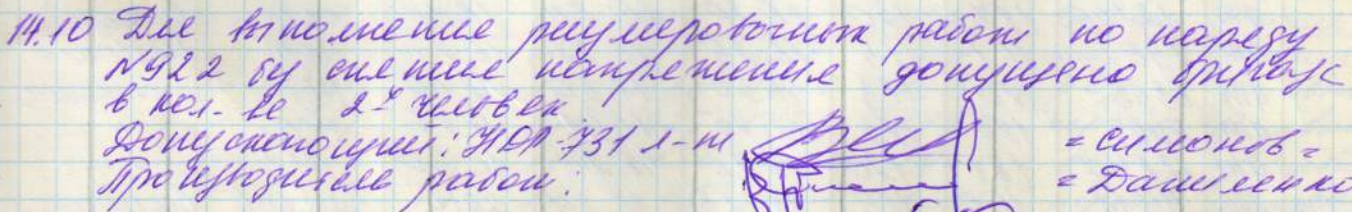 14.10 Для выполнения регулировочных работ по наряду
№922 без снятия напряжения допущена бригада
в кол-ве 2х человек.
Допускающий: НОР-731 л-т =Симонов=
Производитель работ: =Даниленко